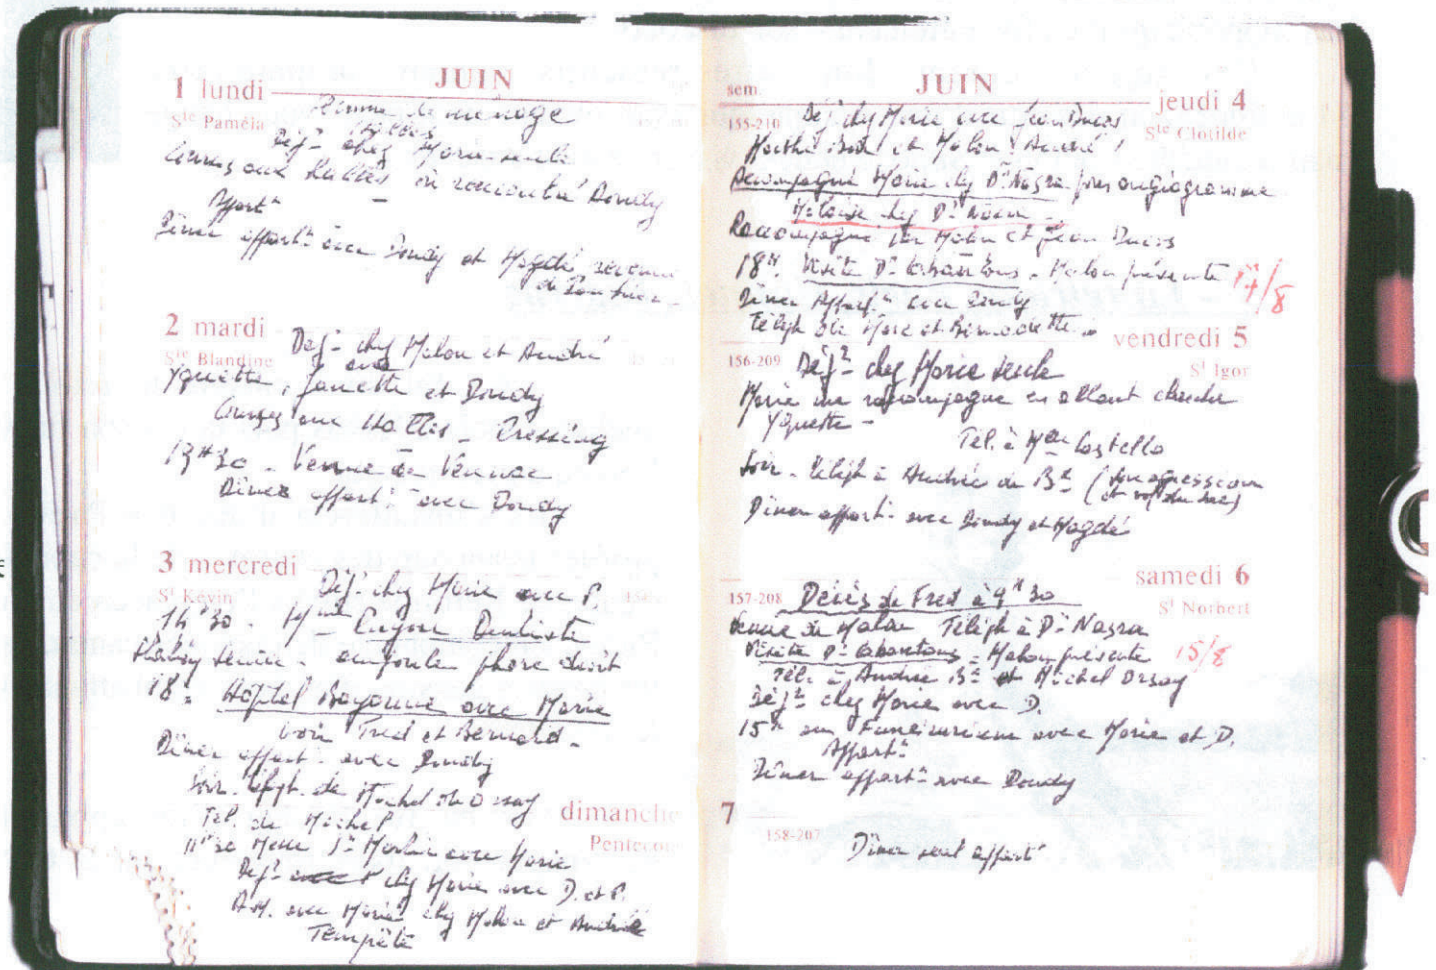 JUIN
1 lundi
Ste Paméla
Femme de ménage
Déj- chez Marie seule
Courses aux Halles où rencontré Doudy
Appart-
Dîner appart- avec Doudy et Magdé, revenue
de
2 mardi
Ste Blandine
Déj- chez Malou et André
avec
Yquette, Janette et Doudy
Courses aux Halles - Pressing
Venue de
Dîner appart- avec Doudy
3 mercredi
St Kévin
Déj- chez Marie avec P.
14H30 - Dentiste
ampoule phare droit
18H. Hôpital Bayonne avec Marie
voir Fred et Bernard -
Dîner appart- avec Doudy
Soir. téléph. de Michel
Tél. de Michel
dimanche
Pentecôte
11H30 Messe St Martin avec Marie
Déj- chez Marie avec D. et P.
A.M. avec Marie chez Malou et André
Tempête
JUIN
sem.
jeudi 4
155-210
Ste Clotilde
Déj- chez Marie avec Jean Ducos
et Malou André
Accompagné Marie chez Dr Nasra pour angiogramme
chez Dr
Raccompagné par Malou et Jean Ducos
18H. Visite Dr Cabantous - Malou présente 17/8
Dîner Appart- avec Doudy
Téléph de Marc et Bernadette
vendredi 5
156-209
St Igor
Déj- chez Marie seule
Marie me raccompagne en allant chercher
Yquette -
Tél. à Mme Costello
Soir - téléph à Andrée de Bz (son agression
et vol du sac)
Dîner appart- avec Doudy et Magdé
samedi 6
157-208
St Norbert
Décès de Fred à 9H30
Venue de Malou Téléph à Dr Nasra
Visite Dr Cabantous - Malou présente 15/8
Tél. à Andrée Bz et Michel Orsay
Déj- chez Marie avec D.
15H au Funérarium avec Marie et D.
Appart-
Dîner appart- avec Doudy
7
158-207
Dîner seul appart-